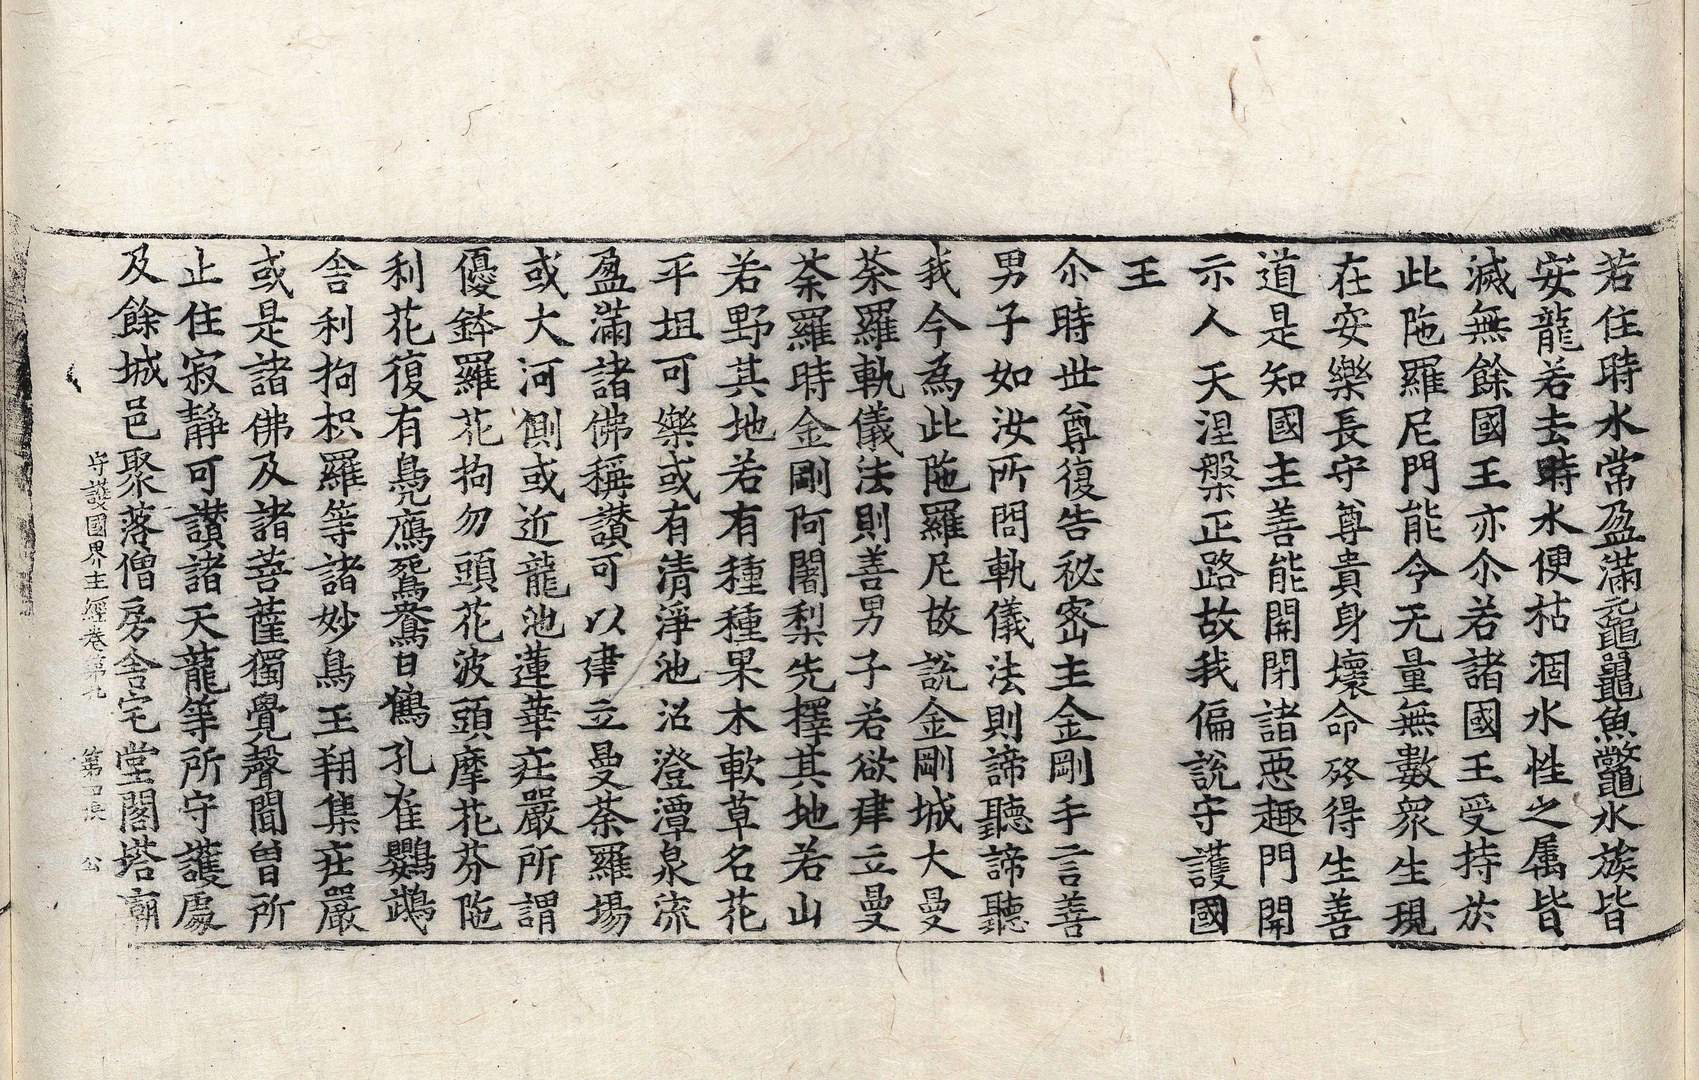 若住時水常盈滿黿鼉龜魚鼈水族皆
安龍若去時水便枯涸水性之属皆
滅無餘國王亦尒若諸國王受持於
此陁羅尼門能令无量無數衆生現
在安樂長守尊貴身壞命終得生善
道是知國主善能開閉諸惡趣門開
示人天涅槃正路故我偏說守護國
王
尒時世尊復告秘密主金剛手言善
男子如汝所問軌儀法則諦聽諦聽
我今為此陁羅尼故說金剛城大曼
荼羅軌儀法則善男子若欲建立曼
荼羅時金剛阿闍梨先擇其地若山
若野其地若有種種果木軟草名花
平坦可樂或有清淨池沼澄潭泉流
盈滿諸佛稱讃可以建立曼荼羅場
或大河側或近龍池蓮華莊嚴所謂
優鉢羅花拘勿頭花波頭摩花芬陁
利花復有鳧鴈鴛鴦白鶴孔雀鸚鵡
舎利拘枳羅等諸妙鳥王翔集莊嚴
或是諸佛及諸菩薩獨覺聲聞曽所
止住寂靜可讃諸天龍等所守護處
及餘城邑聚落僧房舎宅堂閣塔廟
守護國界主經卷第九 第四張 公